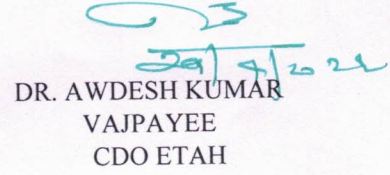 DR. AWDESH KUMAR
VAJPAYEE
CDO ETAH